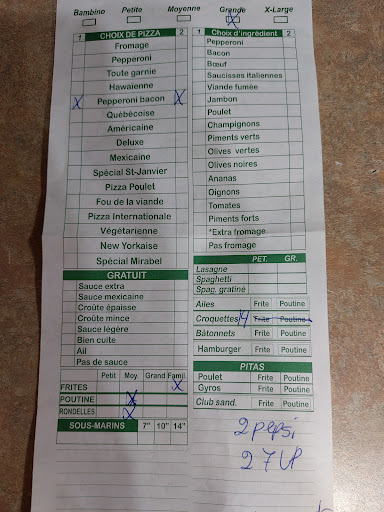 Bambino Petite Moyenne Grande X-Large
X
1 CHOIX DE PIZZA 2
Fromage
Pepperoni
Toute garnie
Hawaïenne
X Pepperoni bacon X
Québécoise
Américaine
Deluxe
Mexicaine
Spécial St-Janvier
Pizza Poulet
Fou de la viande
Pizza Internationale
Végétarienne
New Yorkaise
Spécial Mirabel
GRATUIT
Sauce extra
Sauce mexicaine
Croûte épaisse
Croûte mince
Sauce légère
Bien cuite
Ail
Pas de sauce
Petit Moy Grand Fami.
FRITES X
POUTINE X
RONDELLES X
SOUS-MARINS 7" 10" 14"
1 Choix d'ingrédient 2
Pepperoni
Bacon
Bœuf
Saucisses italiennes
Viande fumée
Jambon
Poulet
Champignons
Piments verts
Olives vertes
Olives noires
Ananas
Oignons
Tomates
Piments forts
*Extra fromage
Pas fromage
PET. GR.
Lasagne
Spaghetti
Spag. gratiné
Ailes Frite Poutine
Croquettes 14 Frite Poutine
Bâtonnets Frite Poutine
Hamburger Frite Poutine
PITAS
Poulet Frite Poutine
Gyros Frite Poutine
Club sand. Frite Poutine
2 pepsi
2 7UP